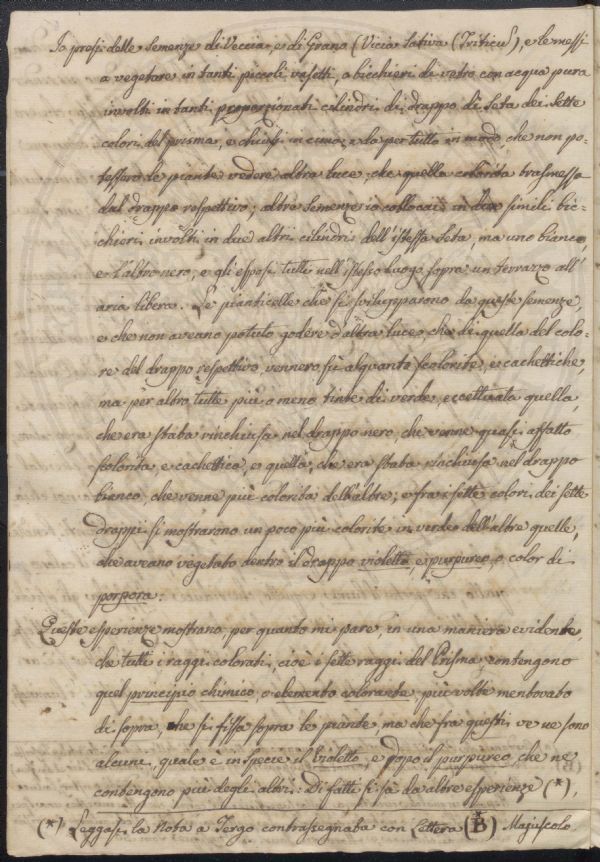 Io presi delle semenze di Veccia, e di Grano (Vicia sativa (Triticũ), e le messi
a vegetare in tanti piccoli vasetti, o bicchieri di vetro con acqua pura
involti in tanti proporzionati cilindri di drappo di seta dei sette
colori del prisma, e chiusi in cima, e da per tutto in modo, che non po-
tessero le piante vedere altra luce, che quella colorita trasmessa
dal drappo respettivo; altre semenze io collocai in due simili bic-
chieri involti in due altri cilindri dell'istessa seta, ma uno bianco,
e l'altro nero, e gli esposi tutti nell'istesso luogo sopra un terrazzo all'
aria libera. Le pianticelle che si svilupparono da queste semenze,
e che non aveano potuto godere d'altra luce, che di quella del colo-
re del drappo respettivo, vennero sù alquanto scolorite, e cachettiche,
ma per altro tutte più o meno tinte di verde, eccettuata quella,
che era stata rinchiusa nel drappo nero, che venne quasi affatto
scolorita, e cachettica, e quella, che era stata rinchiusa nel drappo
bianco, che venne più colorita dell'altre; e fra i sette colori dei sette
drappi si mostrarono un poco più colorite in verde dell'altre quelle,
che aveano vegetato dentro il drappo violetto, e purpureo, o color di
porpora.
Queste esperienze mostrano, per quanto mi pare, in una maniera evidente,
che tutti i raggi colorati, cioè i sette raggi del Prisma, contengono
quel principio chimico, o elemento colorante più volte mentovato
di sopra, che si fissa sopra le piante ma che fra questi ve ne sono
alcuni, quale è in specie il violetto, e dopo il purpureo, che ne
contengono più degli altri: Di fatti si sa da altre esperienze (*),
(*) Leggasi la Nota a Tergo contrassegnata con Lettera (B) Majuscolo